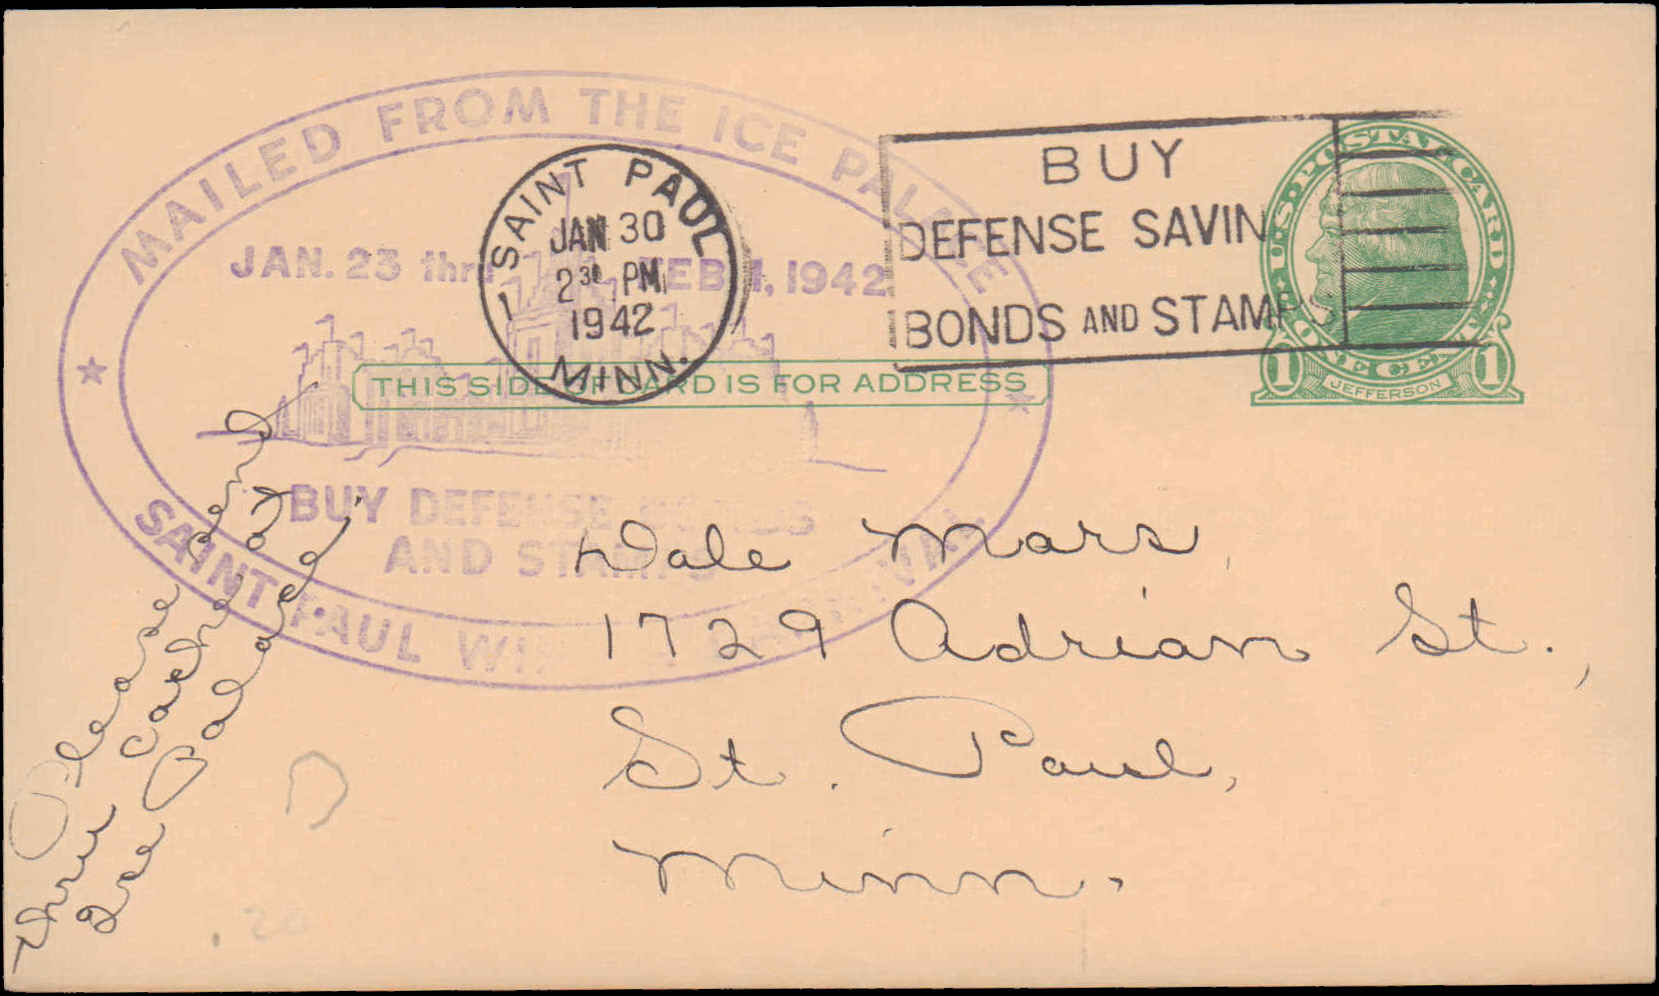 MAILED FROM THE ICE PALACE
JAN. 23 thru FEB 1, 1942
BUY DEFENSE BONDS
AND STAMPS
SAINT PAUL WINTER CARNIVAL
SAINT PAUL
JAN 30
2 30 PM
1942
MINN.
1
BUY
DEFENSE SAVIN
BONDS AND STAMPS
U.S. POSTAL CARD
ONE CENT
1 JEFFERSON 1
THIS SIDE OF CARD IS FOR ADDRESS
Dale Mars
1729 Adrian St.,
St. Paul,
Minn.
Please send
thru cachet at
Ice Palace.
.20